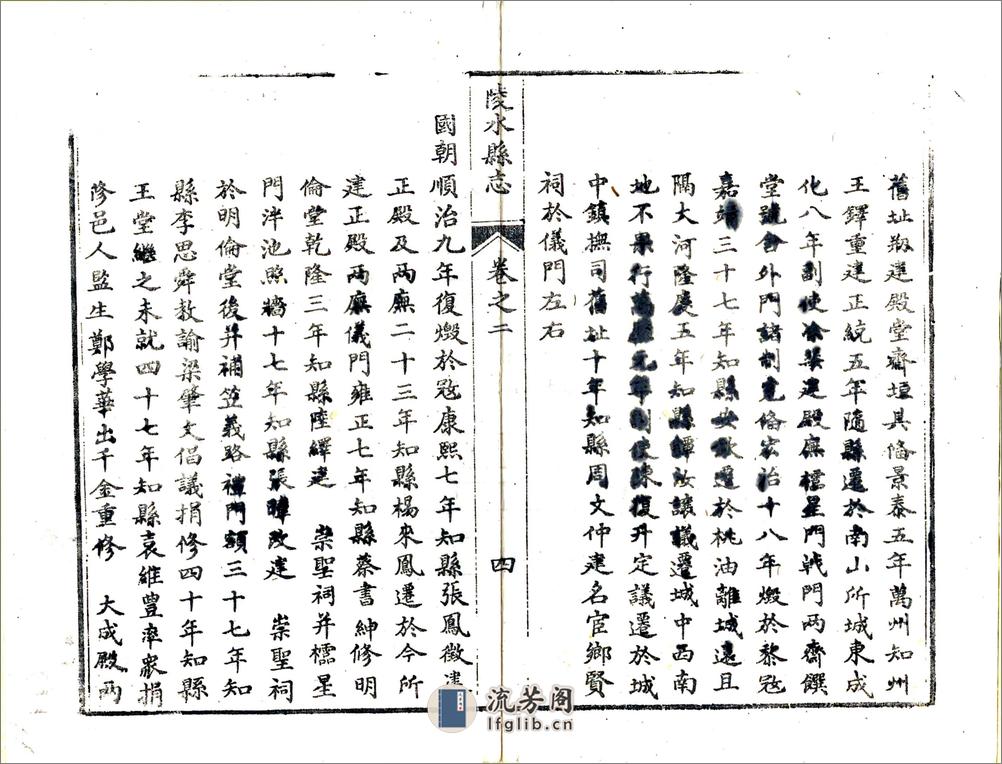 舊址剏建殿堂齋垣具俻景泰五年萬州知州
王鐸重建正統五年隨縣遷於南山所城東成
化八年副使凃棐建殿廡櫺星門㦸門兩齋饌
堂號舍外門諸制克俻宏治十八年燬於黎冦
嘉靖三十七年知縣遷於桃油離城遠且
隅大河隆慶五年知縣譚汝讓議遷城中西南
地不果行萬厯元年副使陳復升定議遷於城
中鎮撫司舊址十年知縣周文仲建名宦鄉賢
祠於儀門左右
陵水縣志 卷之二 四
國朝順治九年復燬於冦康熙七年知縣張鳳徵建
正殿及兩廡二十三年知縣楊來鳳遷於今所
建正殿兩廡儀門雍正七年知縣蔡書紳修明
倫堂乾隆三年知縣陸繹建 崇聖祠并櫺星
門泮池照牆十七年知縣張暐改建 崇聖祠
於明倫堂後并補笠義路禮門額三十七年知
縣李思舜教諭梁肇文倡議捐修四十年知縣
王堂繼之未就四十七年知縣袁維豊率眾捐
修邑人監生鄭學華出千金重修 大成殿兩
流芳阁
lfglib.cn